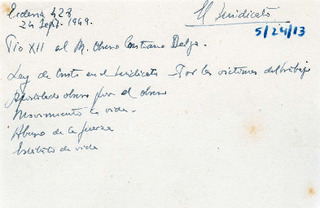 Ecclesia 428
24 Sept. 1949.
El Sindicato
5/24/13
Pio XII al M. Obrero Cristiano Belga.
Ley de Cristo en el Sindicato Por las victimas del trabajo
Apostolado obrero por el obrero
Movimiento es vida.
Abuso de la fuerza
de vida